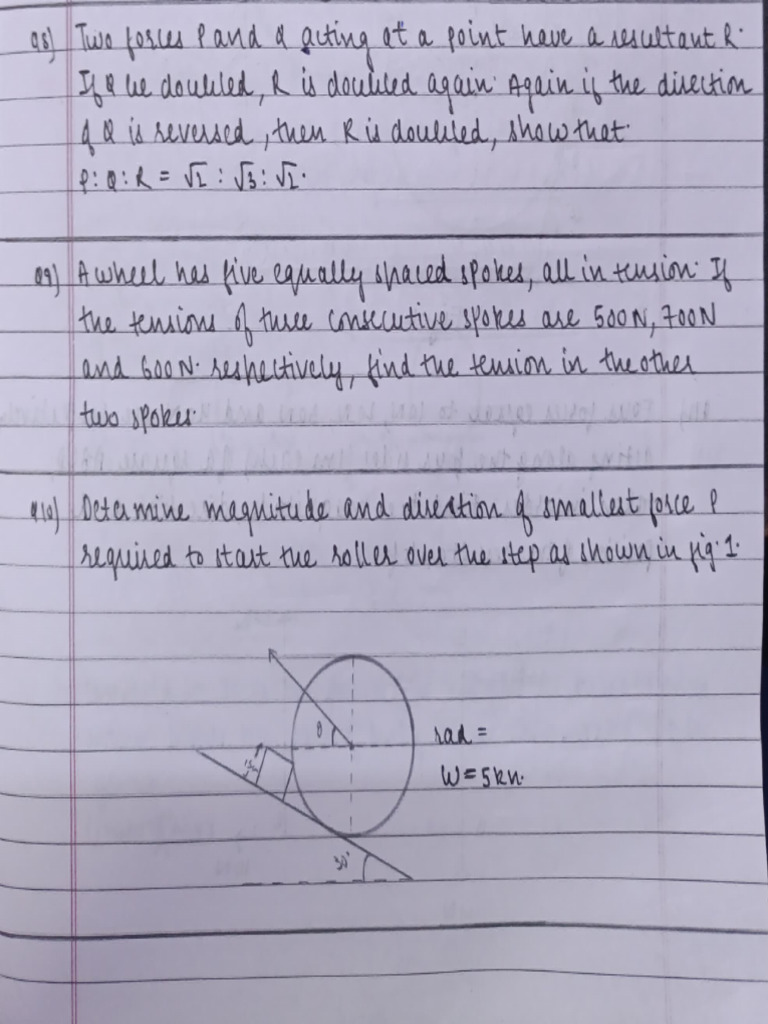 Q8) Two forces P and Q acting at a point have a resultant R.
If Q be doubled, R is doubled again. Again if the direction
of Q is reversed, then R is doubled, show that.
P : Q : R = √2 : √3 : √2.
Q9) A wheel has five equally spaced spokes, all in tension. If
the tensions of three consecutive spokes are 500N, 700N
and 600N. respectively, find the tension in the other
two spokes.
Q10) Determine magnitude and direction of smallest force P
required to start the roller over the step as shown in fig. 1.
θ
rad =
W = 5kn.
30°